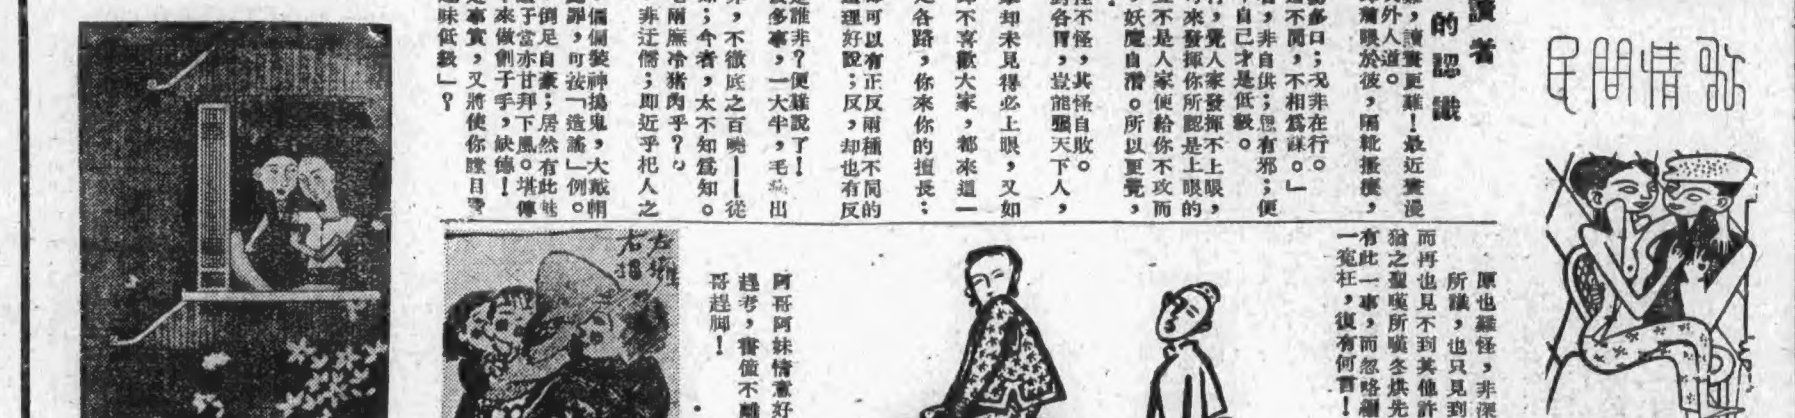 民間情歌
讀者
的認識
難,讀畫更難!最近畫漫
外人道。
眼於彼,隔靴搔癢,
多口;況非在行。
不聞,不相為謀。」
,非自供;思有邪;便
自己才是低級。
,覺人家發揮不上眼,
來發揮你所認是上眼的
不是人家便給你不攻而
,妖魔自潛。所以更覺,
怪不怪,其怪自敗。
到各胃,豈能強天下人,
却未見得必上眼,又如
不喜歡大家,都來這一
是各路,你來你的擅長;
即可以有正反兩種不同的
道理好說;反,却也有反
是誰非?便難說了!
多事,一大半,毛病出
,不徹底之百曉——從
;今者,太不知為知。
兩廡冷豬肉乎?
非迂儒;即近乎杞人之
裝神搗鬼,大戴帽
罪,可按「造謠」例。
倒足自豪;居然有此
于當亦甘拜下風。堪傳
來做劊子手,缺德!
事實,又將使你瞠目
味低級」?
原也難怪,非深
所議,也只見到
而再也見不到其他許
猶之聖嘆所嘆冬烘先
有此一事,而忽略
一寃枉,復有何言!
阿哥阿妹情意好
趕考,寄信不離
哥趕脚!